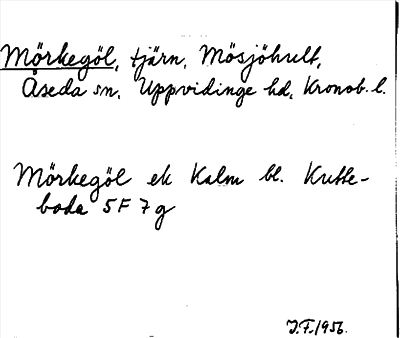 Mörkegöl, tjärn, Mösjöhult,
Åseda sn, Uppvidinge hd, Kronob. l.
Mörkegöl ek Kalm bl. Kulle-
boda 5F 7g
J.F. 1956.